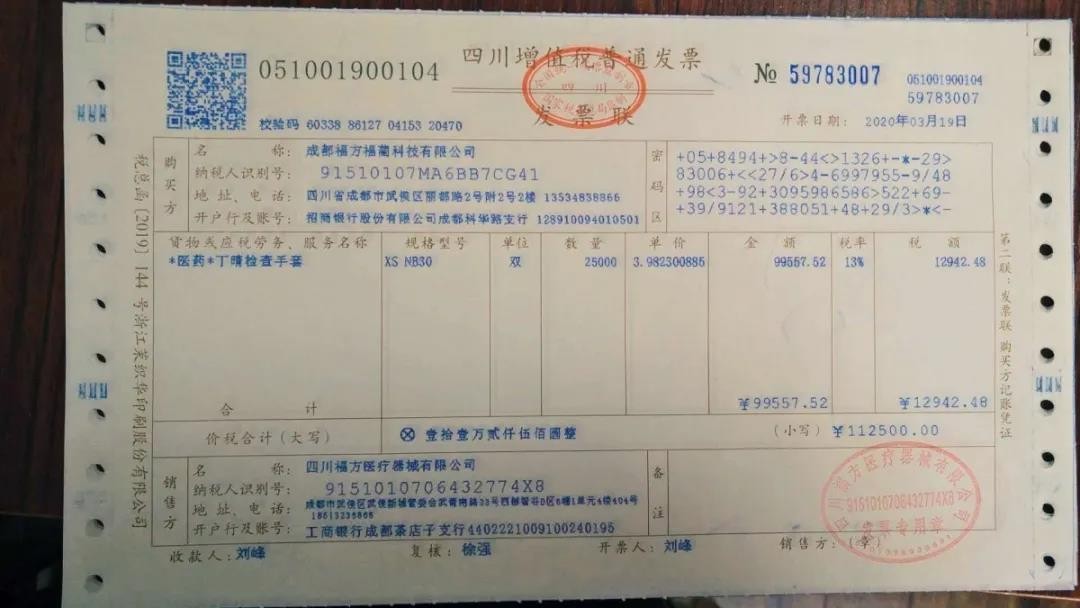 四川增值税普通发票
发票联
051001900104
№ 59783007
051001900104
59783007
校验码 60338 86127 04153 20470
开票日期: 2020年03月19日
购买方
名 称: 成都福方福蔺科技有限公司
纳税人识别号: 91510107MA6BB7CG41
地址、电话: 四川省成都市武侯区丽都路2号附2号2楼 13534838866
开户行及账号: 招商银行股份有限公司成都科华路支行 128910094010501
密码区
+05+8494+>8-44<>1326+-*-29>
83006+<<27/6>4-6997955-9/48
+98<3-92+3095986586>522+69-
+39/9121+388051+48+29/3>*<-
货物或应税劳务、服务名称 规格型号 单位 数量 单价 金额 税率 税额
*医药*丁晴检查手套 XS NB30 双 25000 3.982300885 99557.52 13% 12942.48
合 计 ¥99557.52 ¥12942.48
价税合计(大写) ⊗ 壹拾壹万贰仟伍佰圆整 (小写) ¥112500.00
销售方
名 称: 四川福方医疗器械有限公司
纳税人识别号: 9151010706432774X8
地址、电话: 成都市武侯区武侯新城管委会武青南路33号西部智谷D区6幢1单元4楼404号
18613236866
开户行及账号: 工商银行成都茶店子支行4402221009100240195
备注
收款人: 刘峰 复核: 徐强 开票人: 刘峰 销售方:(章)
9151010706432774X8
发票专用章
税总函[2019]144号浙江莱织华印刷股份有限公司
第二联:发票联 购买方记账凭证